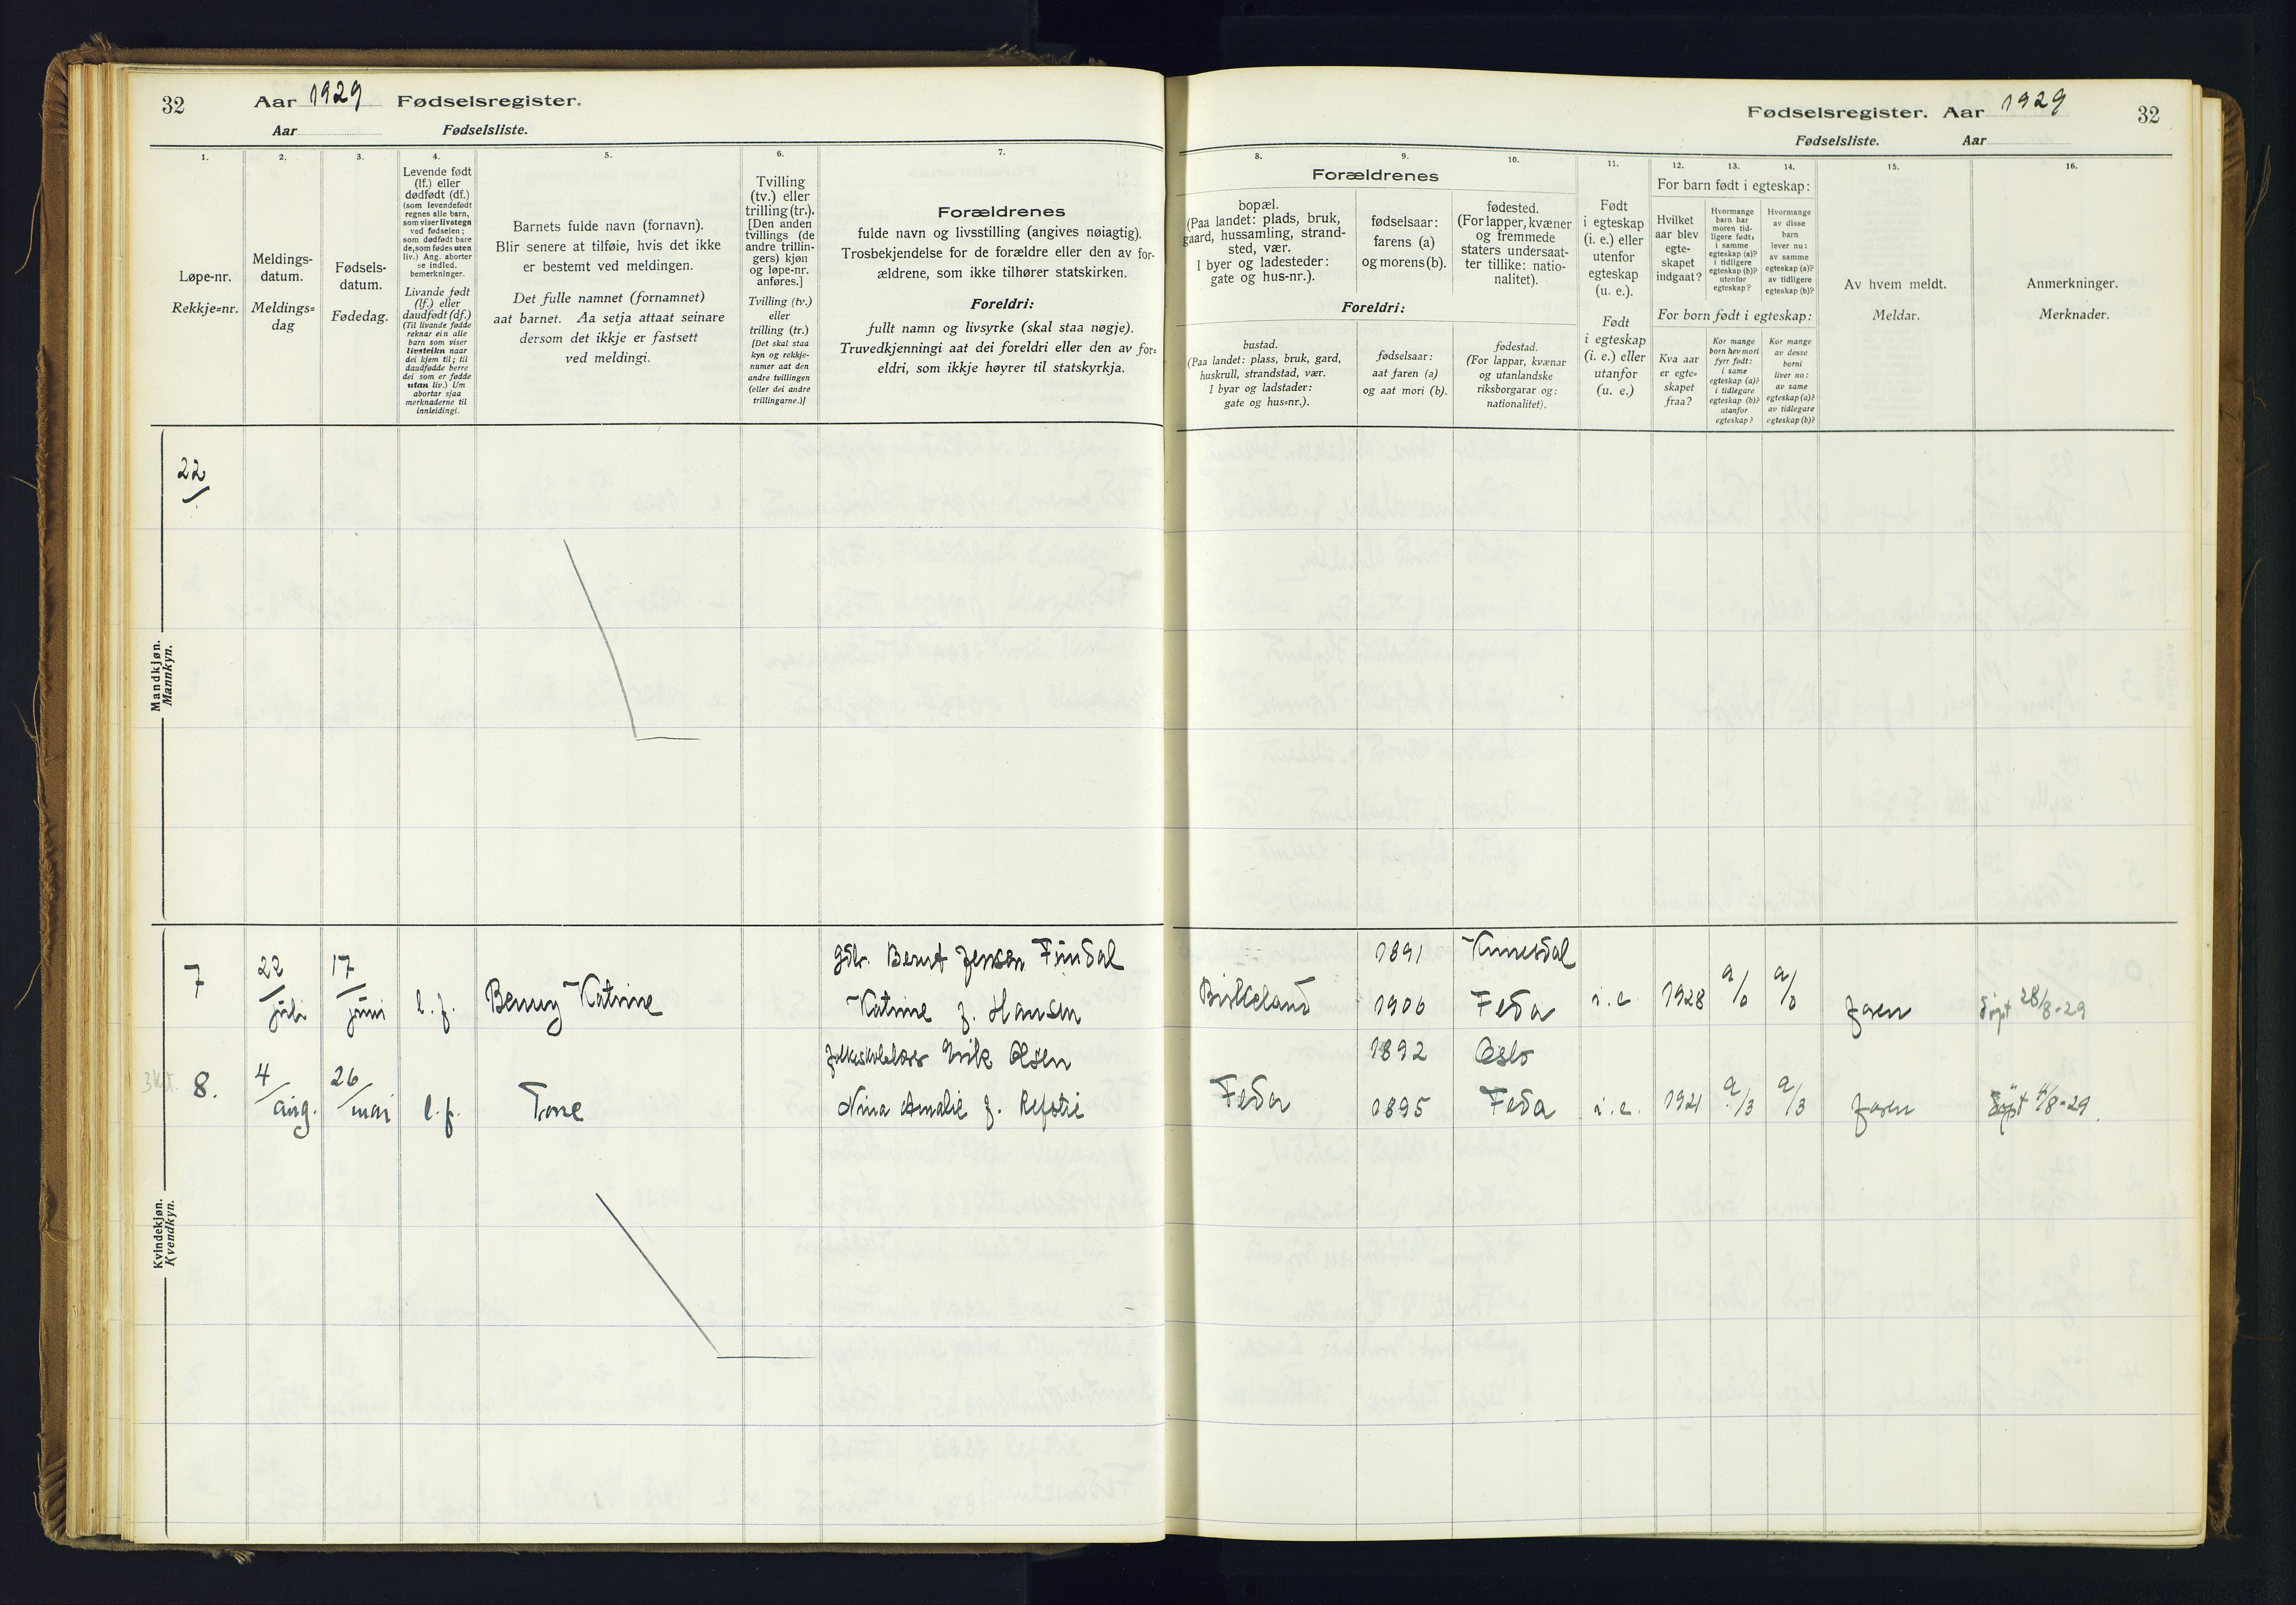 32 Aar 1929 Fødselsregister.
Aar Fødselsliste.
1.
2.
3.
4.
5.
6.
7.
Løpe-nr.
Rekkje=nr.
Meldings-
datum.
Meldings=
dag
Fødsels-
datum.
Fødedag.
Levende født
(lf.) eller
dødfødt (df.)
(som levendefødt
regnes alle barn,
som viser livstegn
ved fødselen;
som dødfødt bare
de, som fødes uten
liv.) Ang. aborter
se indled.
bemerkninger.
Livande født
(lf.) eller
daudfødt (df.)
(Til livande fødde
reknar ein alle
barn som viser
livsteikn naar
dei kjem til; til
daudfødde berre
dei som er fødde
utan liv.) Um
abortar sjaa
merknaderne til
innleidingi.
Barnets fulde navn (fornavn).
Blir senere at tilføie, hvis det ikke
er bestemt ved meldingen.
Det fulle namnet (fornamnet)
aat barnet. Aa setja attaat seinare
dersom det ikkje er fastsett
ved meldingi.
Tvilling
(tv.) eller
trilling (tr.).
[Den anden
tvillings (de
andre trillin-
gers) kjøn
og løpe-nr.
anføres.]
Tvilling (tv.)
eller
trilling (tr.)
[Det skal staa
kyn og rekkje-
numer aat den
andre tvillingen
(eller dei andre
trillingarne.)]
Forældrenes
fulde navn og livsstilling (angives nøiagtig).
Trosbekjendelse for de forældre eller den av for-
ældrene, som ikke tilhører statskirken.
Foreldri:
fullt namn og livsyrke (skal staa nøgje).
Truvedkjenningi aat dei foreldri eller den av for=
eldri, som ikkje høyrer til statskyrkja.
Mandkjøn.
Mannkyn.
22
Kvindekjøn.
Kvendkyn.
7
22/juli
17/juni
l. f.
Benny Katrine
gdbr. Bernt Jensen Fintdal
Katrine f. Hansen
8.
4/aug.
26/mai
l. f.
Tone
folkeskolelærer Erik Olsen
Nina Amalie f. Refstie
Fødselsregister. Aar 1929 32
Fødselsliste. Aar
8.
9.
10.
11.
12.
13.
14.
15.
16.
Forældrenes
bopæl.
(Paa landet: plads, bruk,
gaard, hussamling, strand-
sted, vær.
I byer og ladesteder:
gate og hus-nr.).
fødselsaar:
farens (a)
og morens (b).
fødested.
(For lapper, kvæner
og fremmede
staters undersaat-
ter tillike: natio-
nalitet).
Foreldri:
bustad.
(Paa landet: plass, bruk, gard,
huskrull, strandstad, vær.
I byar og ladstader:
gate og hus=nr.).
fødselsaar:
aat faren (a)
og aat mori (b).
fødestad.
(For lappar, kvænar
og utanlandske
riksborgarar og:
nationalitet).
Født
i egteskap
(i. e.) eller
utenfor
egteskap
(u. e.).
Født
i egteskap
(i. e.) eller
utanfor
(u. e.)
For barn født i egteskap:
Hvilket
aar blev
egte-
skapet
indgaat?
Hvormange
barn har
moren tid-
ligere født:
i samme
egteskap (a)?
i tidligere
egteskap (b)?
utenfor
egteskap?
Hvormange
av disse
barn
lever nu:
av samme
egteskap (a)?
av tidligere
egteskap (b)?
For born født i egteskap:
Kva aar
er egte=
skapet
fraa?
Kor mange
born hev mori
fyrr født:
i same
egteskap (a)?
i tidlegare
egteskap (b)?
utanfor
egteskap?
Kor mange
av desse
borni
liver no:
av same
egteskap (a)?
av tidlegare
egteskap (b)?
Av hvem meldt.
Meldar.
Anmerkninger.
Merknader.
1891 Kvinesdal
Birkeland 1906 Feda i. e. 1928 a/0 a/0 faren døpt 28/8-29
1892 Oslo
Feda 1895 Feda i. e. 1921 a/3 a/3 faren døpt 4/8-29.